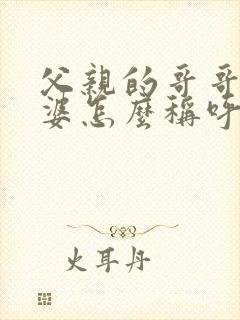 父親的哥哥
婆怎麼稱呼
火耳丹